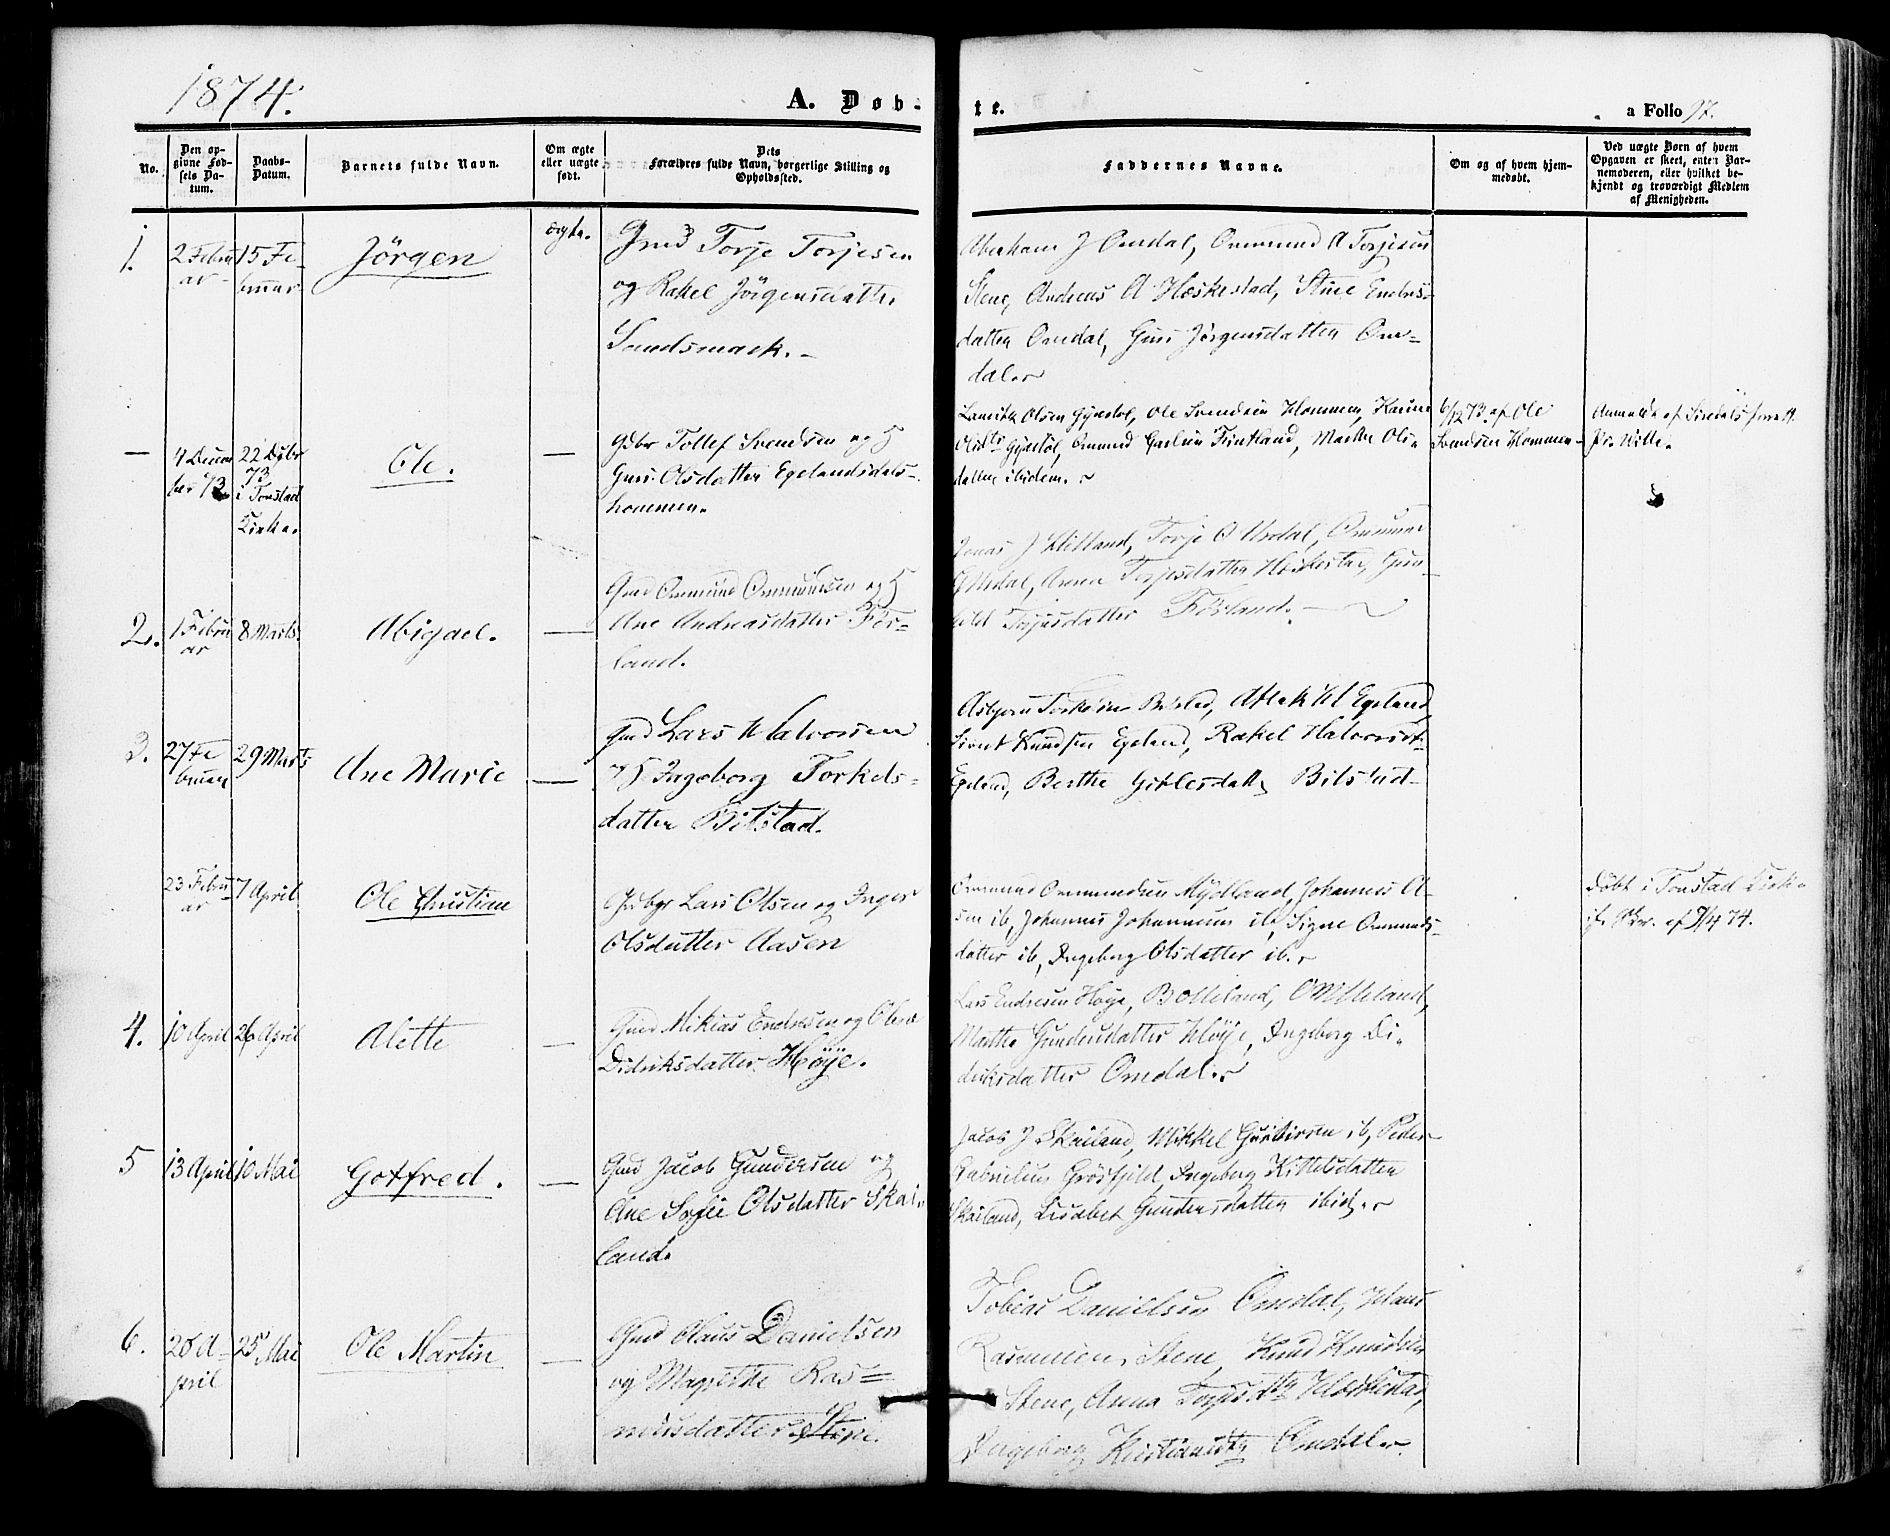 1874.
A. Døb-
te.
a Folio 97.
No.
Den op-
givne Fød-
sels Da-
tum.
Daabs-
Datum.
Barnets fulde Navn.
Om ægte
eller uægte
født.
Dets
Forældres fulde Navn, borgerlige Stilling og
Opholdssted.
Faddernes Navne.
Om og af hvem hjem-
medøbt.
Ved uægte Børn af hvem
Opgaven er skeet, enten Bar-
nemoderen, eller hvilket be-
kjendt og troværdigt Medlem
af Menigheden.
1.
2 Febru
ar
15 Fe-
bruar
Jörgen
ægte.
Gmd Torje Torjesen
og Rakel Jörgensdatter
Sandsmark.
Aberham J Omdal, Ommund A Torjesen
Stene, Andreas A Heskestad, Stine Endres-
datter Omdal, Guri Jörgensdatter Om-
dal.
—
4 Decem
ber 73
22 Dsbr
73
i Tonstad
Kirke.
Ole.
—
Gdbr Tollef Svendsen og H
Guri Olsdatter Egelandsdals-
hommen.
Olsen Gyseböl, Ole Svendsen Hommen, Karine
Olsdtr Gyseböl, Omund Finkland, Marthe Ols-
datter ibidem.
6/12 73 af Ole
Svendsen Hommen
Anmeldt af Siredals
Pr. Wille.
2.
1 Febru
ar
8 Marts.
Abigael.
—
Gmd Ommund Ommundsen og H
Ane Andreasdatter För-
land.
Jonas J Förland, Torje O Urdal, Ommund
Urdal, Anna Torjesdatter Heskestad, Gun-
hild Torjesdatter Förland.
3.
27 Fe
bruar
29 Marts
Ane Marie
—
Gmd Lars Halvorsen
og H Ingeborg Torkels-
datter Bilstad.
Asbjörn Torkelsen Bilstad, Atlak H Egeland
Sivert Knudsen Egeland, Rakel Halvorsdt-
Egeland, Berthe Gitlesdatter Bilstad
23 Febru
ar
7 April
Ole Christian
Gdbgr Lars Olsen og Inger
Olsdatter Aasen
Ommund Ommundsen Mydland, Johannes O-
sen ib, Johannes Johannesen ib, Signe Ommunds-
datter ib, Ingeborg Olsdatter ib.
Döbt i Tonstad Kirke
74.
4.
10 April
26 April
Alette
—
Gmd Mikias Endresen og Olene
Didriksdatter Höye.
Lars Endresen Höye,
Marthe Gundersdatter Höye, Ingeborg Di-
driksdatter Omdal.
5
13 April
10 Mai
Gotfred.
—
Gmd Jacob Gundersen og
Ane Sofie Olsdatter Skai-
land.
Jacob J Skailand, Mikkel Gundersen ib, Peder
Gabrielsen Grösfjeld, Ingeborg Kittelsdatter
Skailand, Lisabet Gundersdatter ibid.
6.
28 A-
pril
25 Mai
Ole Martin
—
Gmd Claus Danielsen
og Magrethe Ras-
musdatter Stene.
Tobias Danielsen Omdal, Hans
Rasmussen Stene, Knud Knudsen
Stene, Anna Torjesdtr Heskestad,
Ingeborg Kristiansdtr Omdal.